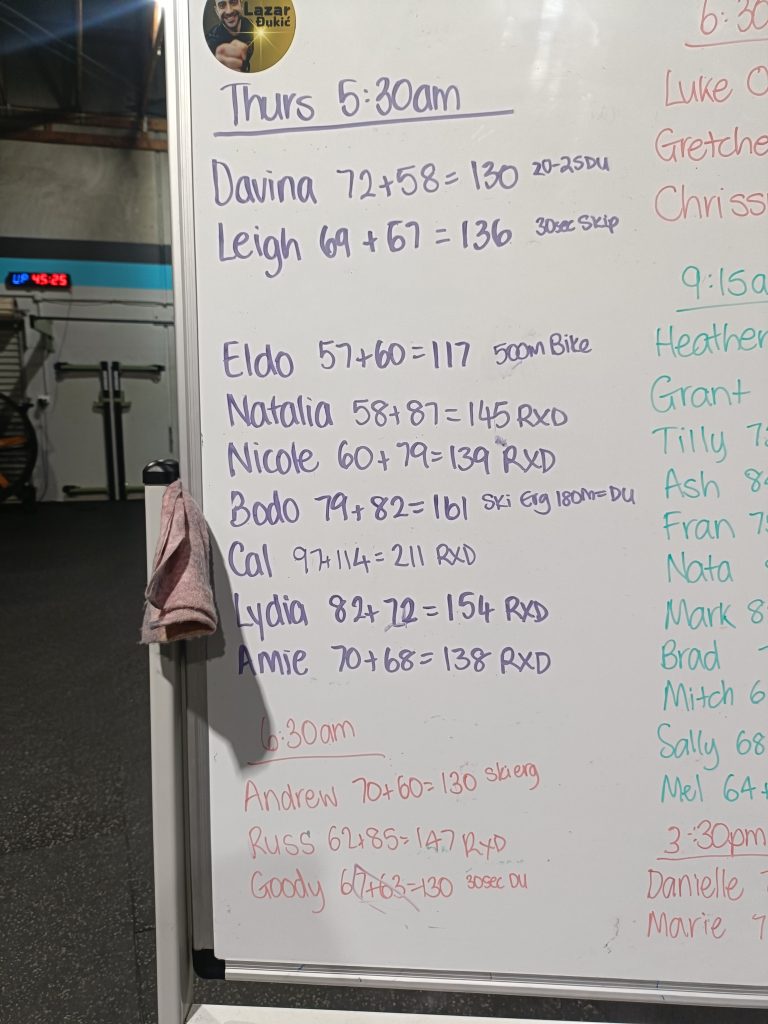 Lazar
Đukić
Thurs 5:30am
Davina 72+58=130 20-25DU
Leigh 69+67=136 30sec Skip
Eldo 57+60=117 500m Bike
Natalia 58+87=145 RXD
Nicole 60+79=139 RXD
Bodo 79+82=161 Ski Erg 180M=DU
Cal 97+114=211 RXD
Lydia 82+72=154 RXD
Amie 70+68=138 RXD
6:30am
Andrew 70+60=130 Skierg
Russ 62+85=147 RXD
Goody 67+63=130 30sec DU
6:30
Luke O
Gretche
Chriss
9:15a
Heather
Grant
Tilly 7
Ash 8
Fran 7
Nata
Mark 8
Brad
Mitch 6
Sally 68
Mel 64+
3:30pm
Danielle
Marie 7
UP 45:25